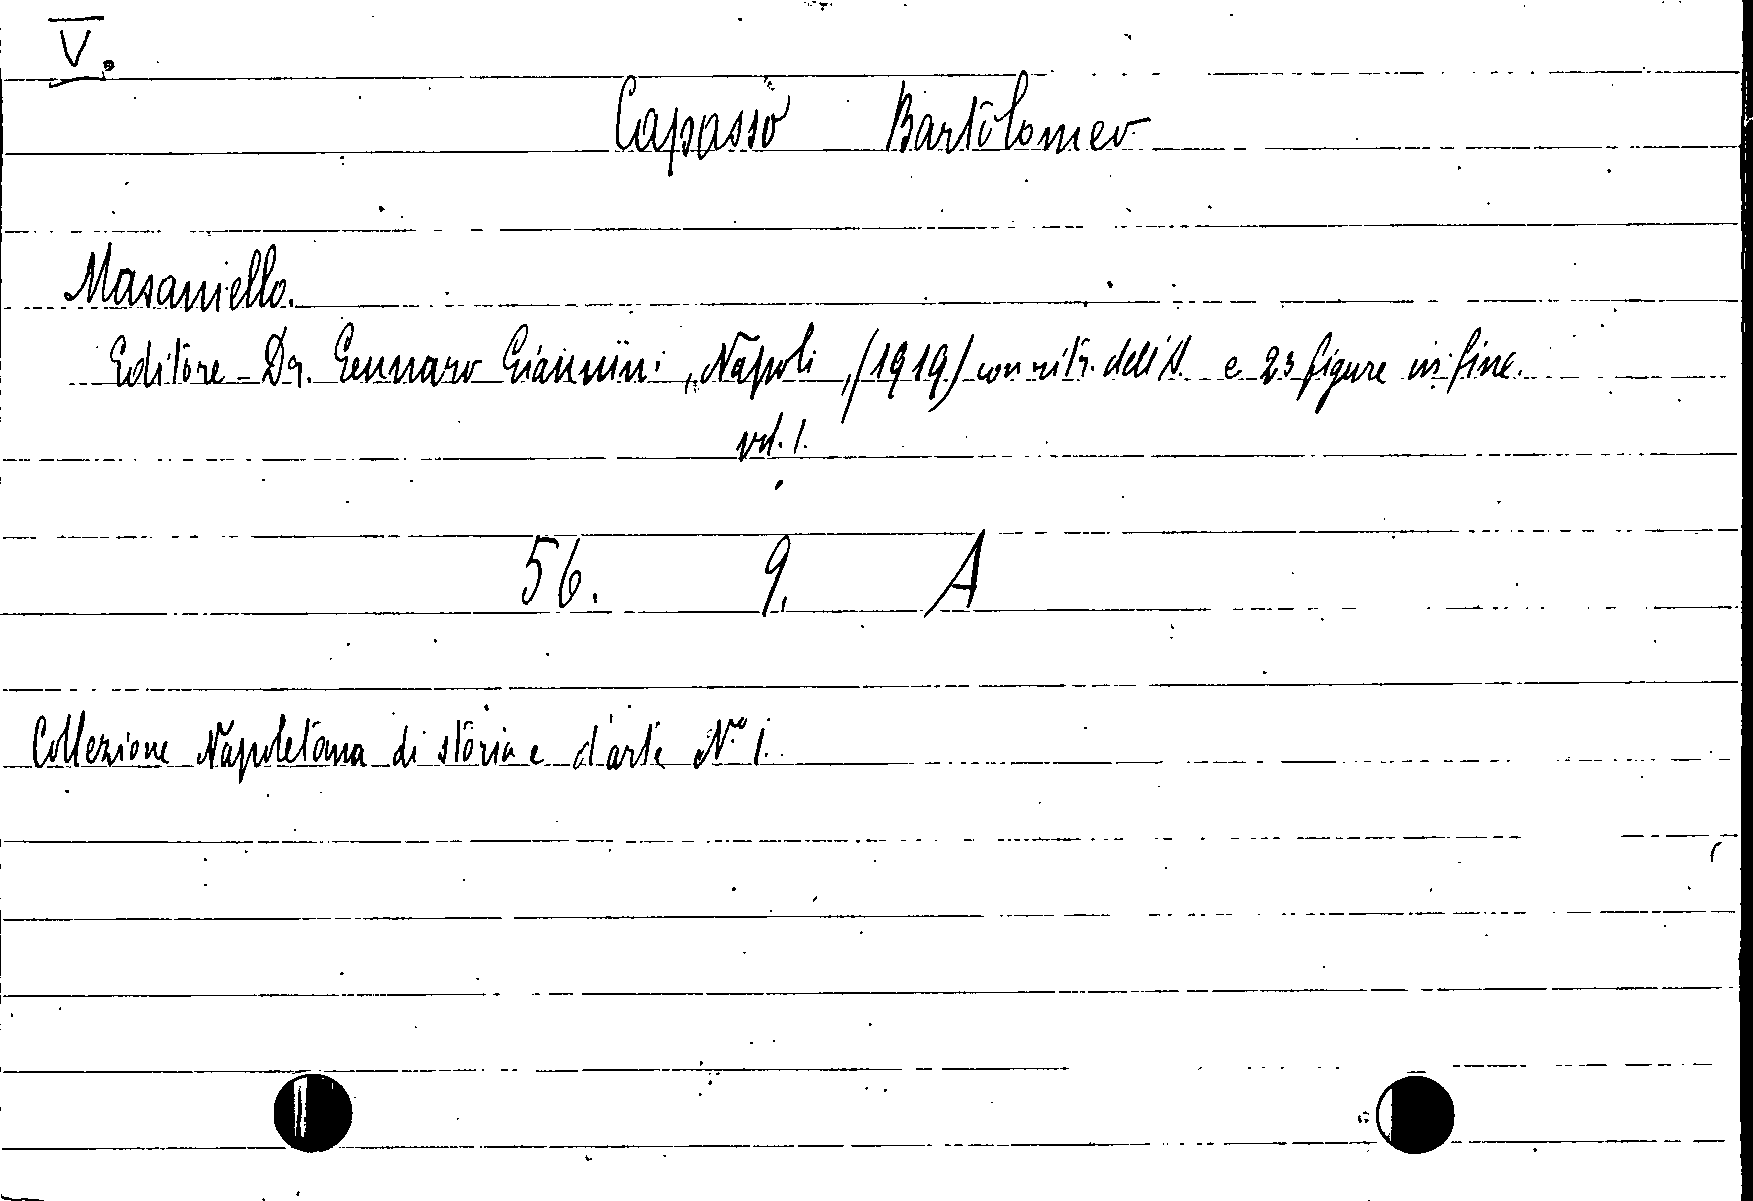 V.
Capasso Bartolomeo
Masaniello.
Editore Dr. Gennaro Giannini, Napoli, (1919) con ritr. dell'A. e 23 figure in fine.
vol. 1.
56. 9. A
Collezione Napoletana di storia e d'arte N.º 1.